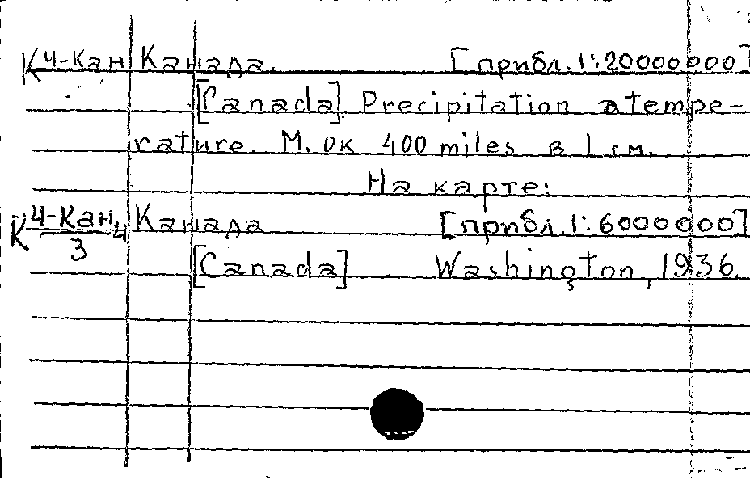 К Ч-Кан Канада. [прибл. 1:20000000]
[Canada] Precipitation a tempe-
rature. М. ок 400 miles в 1 см.
На карте:
К Ч-Кан, Канада [прибл. 1:6000000]
3 4
[Canada] Washington, 1936